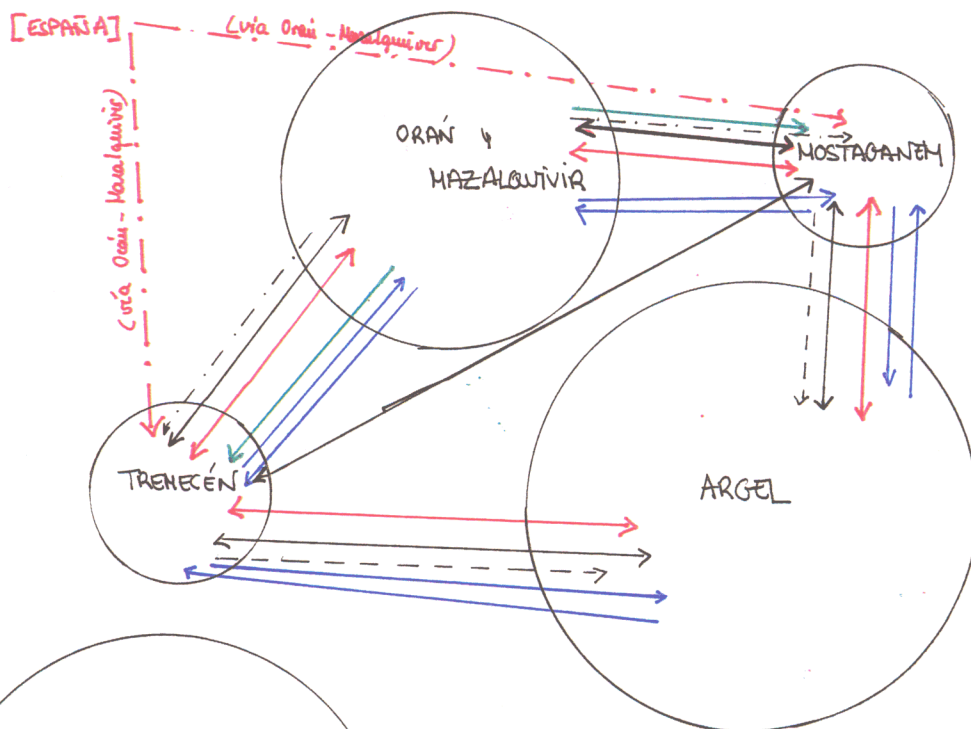 [ESPAÑA]
(vía Orán-Mazalquivir)
(vía Orán-Mazalquivir)
ORÁN Y
MAZALQUIVIR
MOSTAGANEM
TREMECÉN
ARGEL